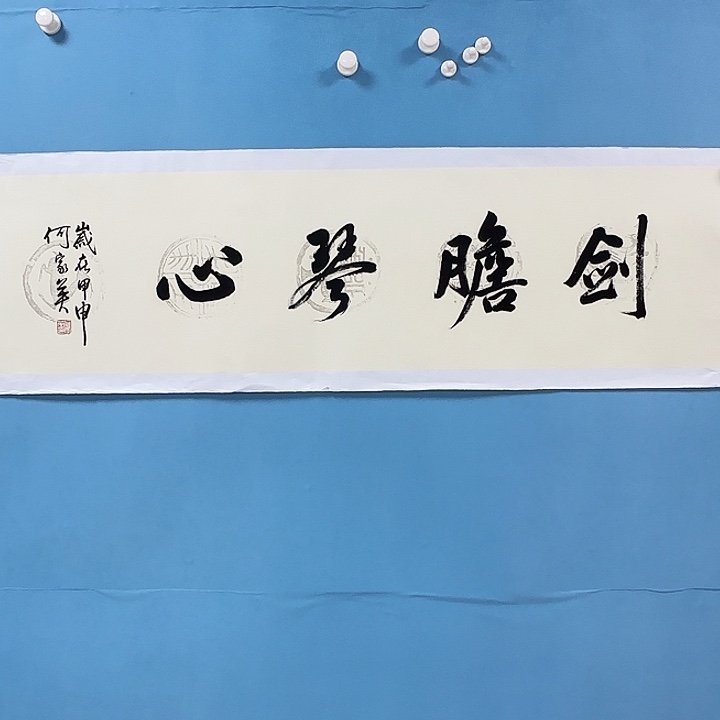 劍膽琴心
歲在甲申
何家英